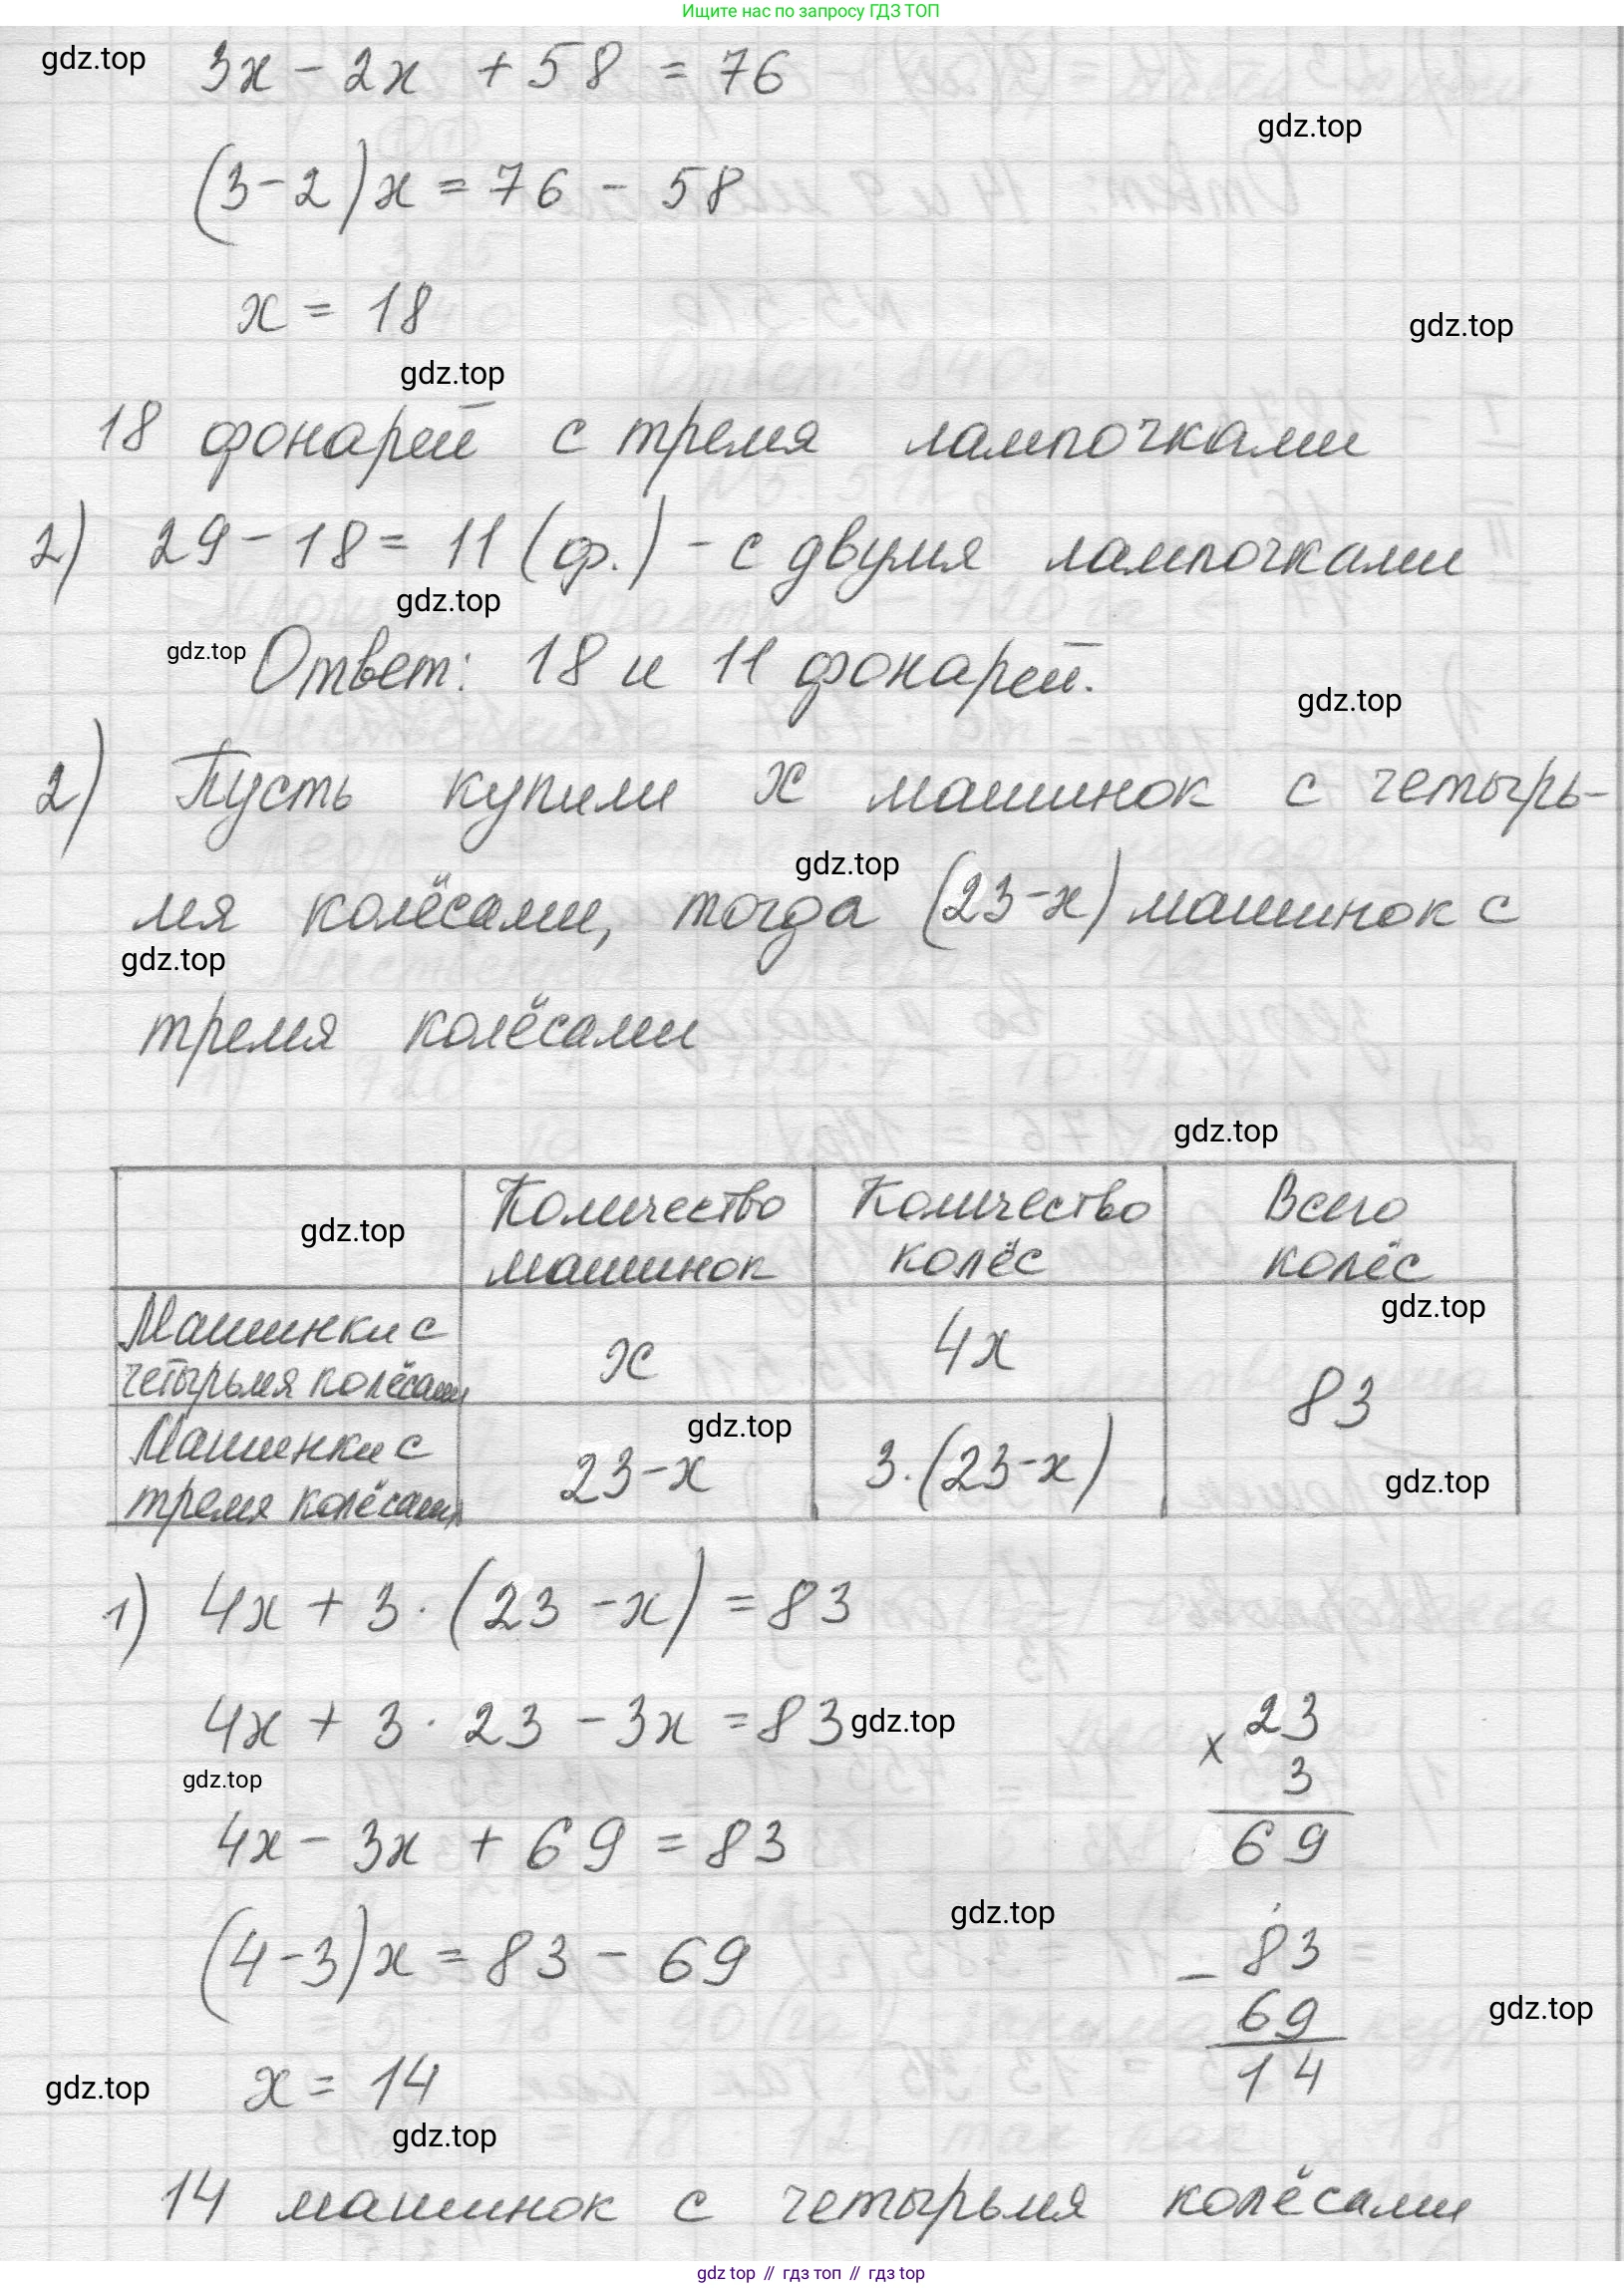 Ищите нас по запросу ГДЗ ТОП
gdz.top
3x - 2x + 58 = 76
gdz.top
(3-2)x = 76 - 58
x = 18
gdz.top
gdz.top
18 фонарей с тремя лампочками
2) 29 - 18 = 11 (ф.) - с двумя лампочками
gdz.top
gdz.top Ответ: 18 и 11 фонарей.
gdz.top
2) Пусть купили x машинок с четырь-
gdz.top
мя колёсами, тогда (23-x) машинок с
gdz.top
тремя колёсами
gdz.top
gdz.top
Количество машинок
Количество колёс
Всего колёс
gdz.top
Машинки с четырьмя колёсами
x
4x
83
gdz.top
Машинки с тремя колёсами
23-x
3·(23-x)
gdz.top
1) 4x + 3·(23-x) = 83
4x + 3·23 - 3x = 83
gdz.top
x 23
3
69
gdz.top
4x - 3x + 69 = 83
gdz.top
(4-3)x = 83 - 69
- 83
69
14
gdz.top
gdz.top
x = 14
gdz.top
14 машинок с четырьмя колёсами
gdz top // гдз топ // гдз top